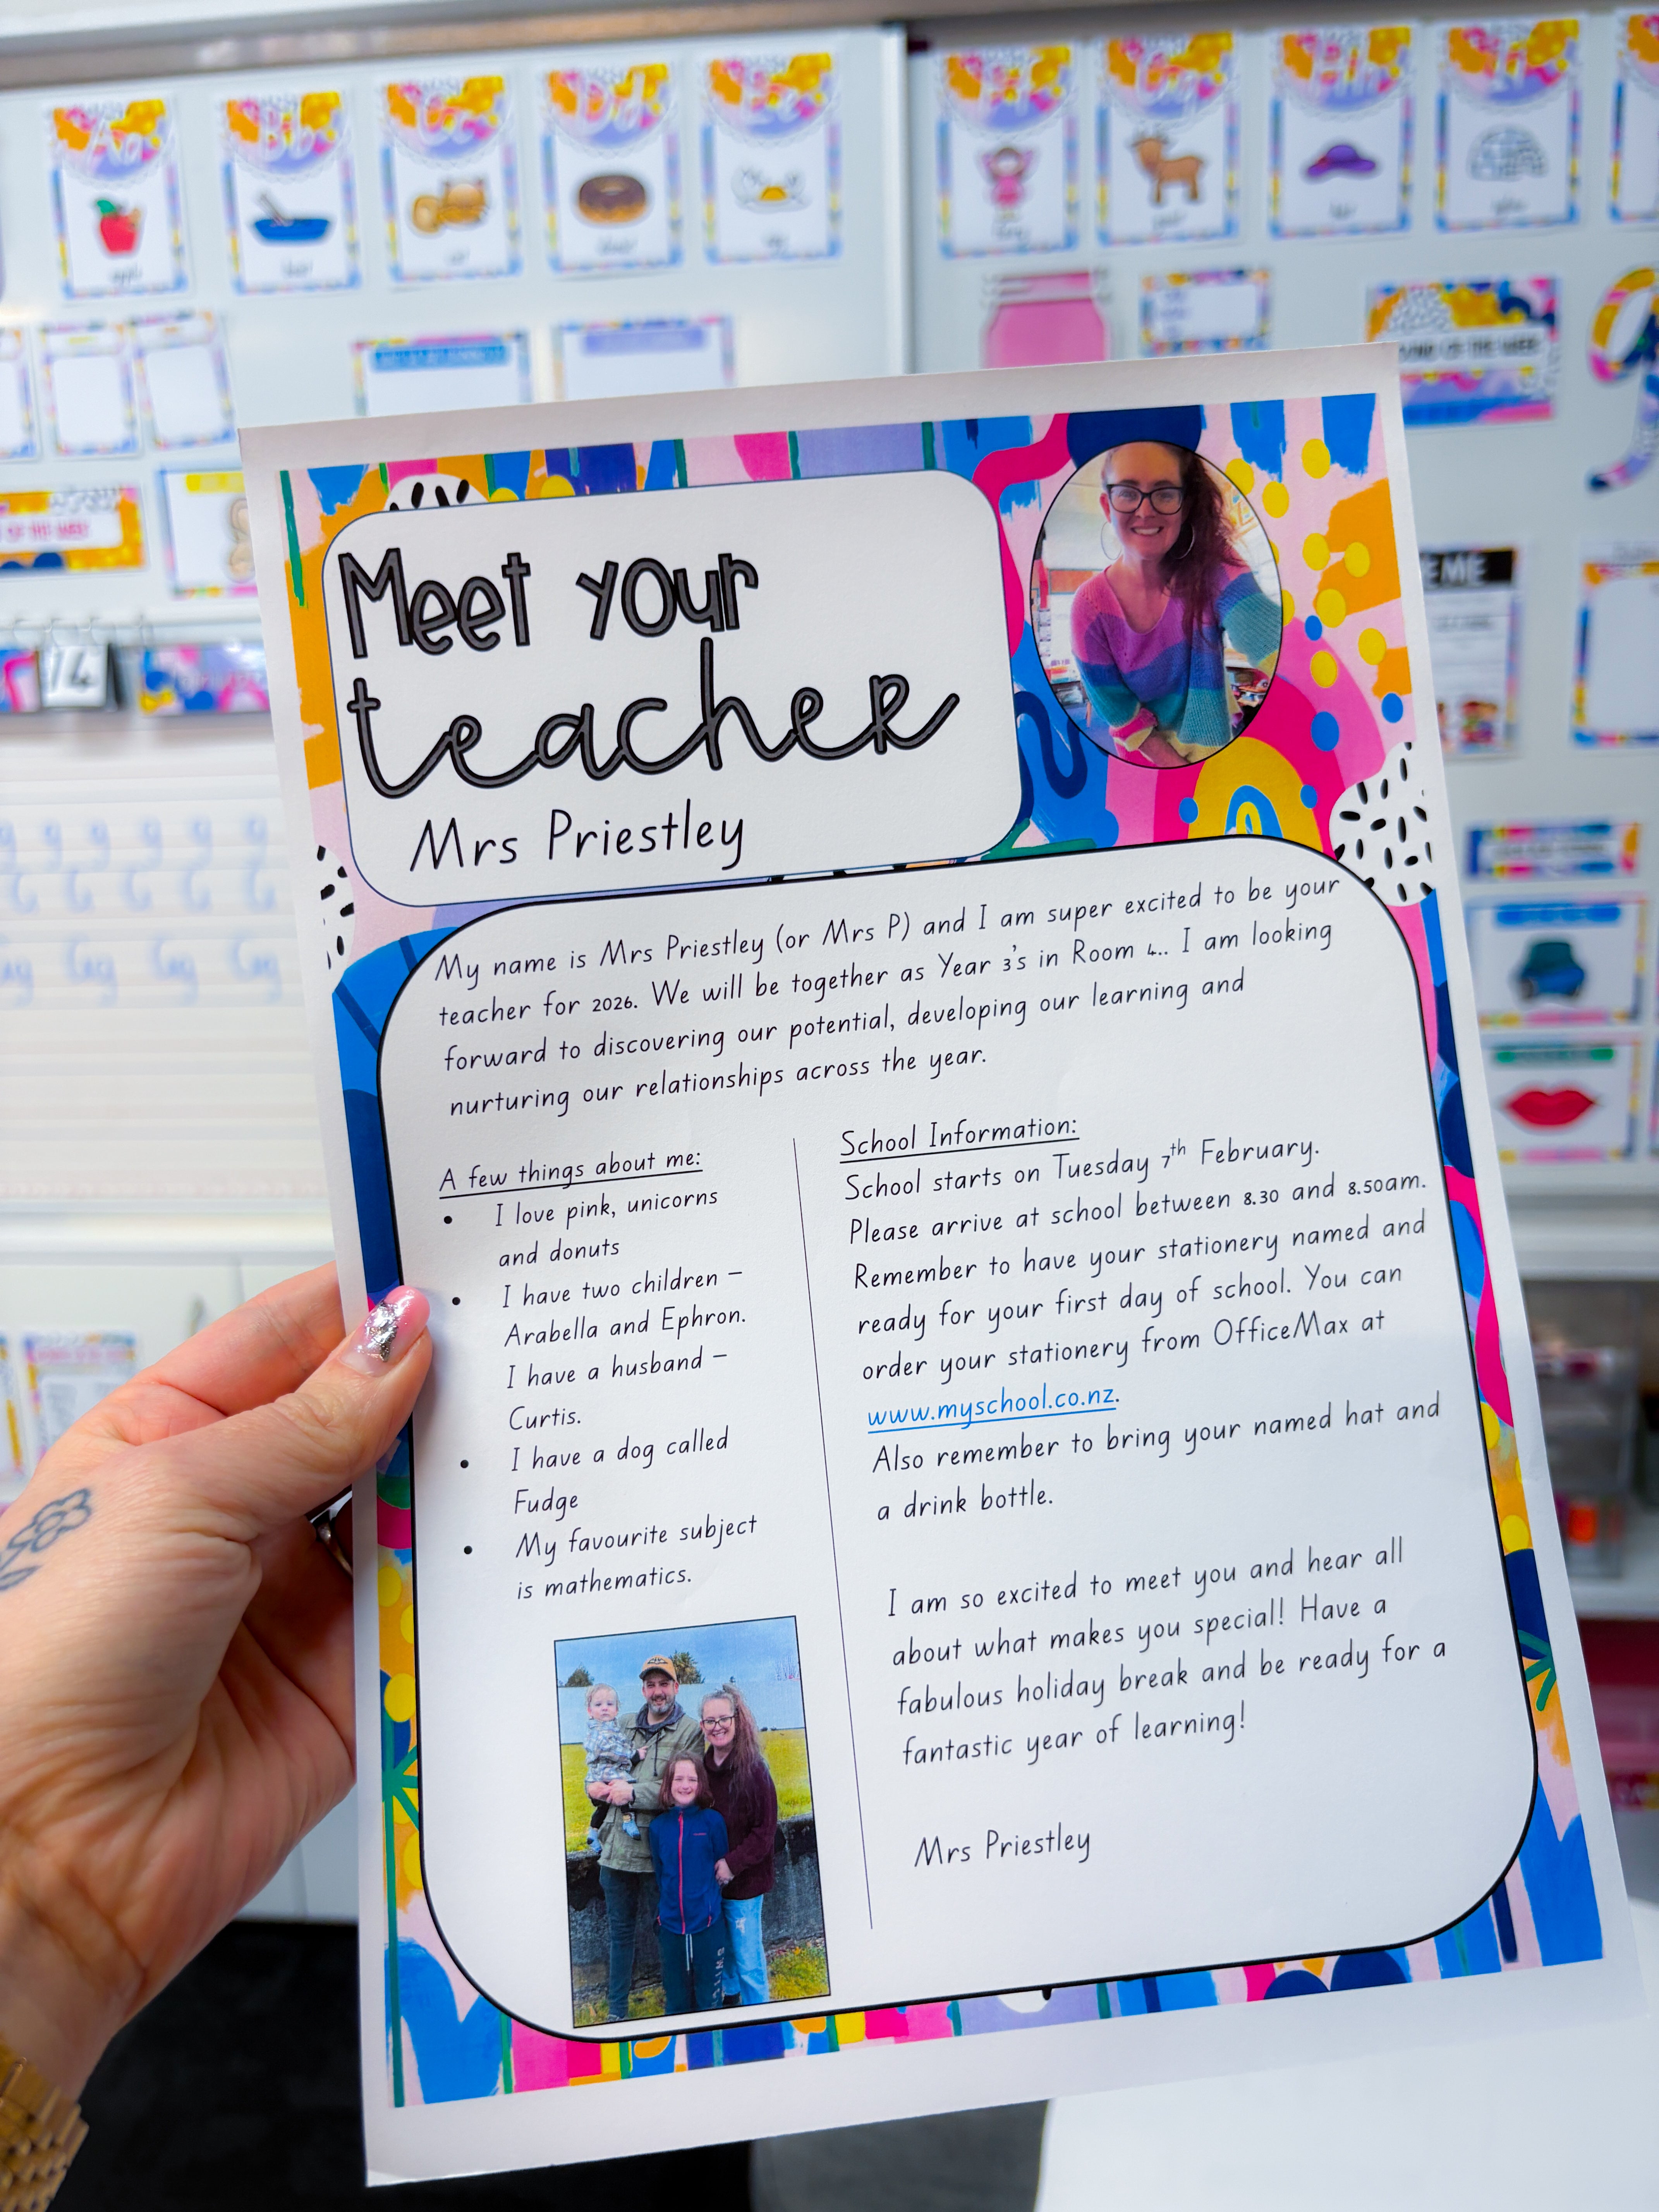 14
OF THE WEEK
OUND OF THE WEEK
EME
Meet your
teacher
Mrs Priestley
My name is Mrs Priestley (or Mrs P) and I am super excited to be your
teacher for 2026. We will be together as Year 3's in Room 4.. I am looking
forward to discovering our potential, developing our learning and
nurturing our relationships across the year.
A few things about me:
• I love pink, unicorns
and donuts
• I have two children –
Arabella and Ephron.
I have a husband –
Curtis.
• I have a dog called
Fudge
• My favourite subject
is mathematics.
School Information:
School starts on Tuesday 7th February.
Please arrive at school between 8.30 and 8.50am.
Remember to have your stationery named and
ready for your first day of school. You can
order your stationery from OfficeMax at
www.myschool.co.nz.
Also remember to bring your named hat and
a drink bottle.
I am so excited to meet you and hear all
about what makes you special! Have a
fabulous holiday break and be ready for a
fantastic year of learning!
Mrs Priestley